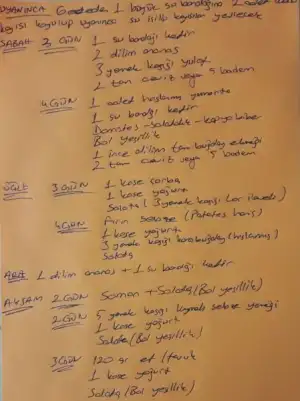 UYANINCA Gecede 1 büyük su bardağına 2 adet
kayısı koyulup uyanınca su içilip kayısılar yenilecek
SABAH 3 GÜN 1 su bardağı kefir
2 dilim ananas
3 yemek kaşığı yulaf
2 tam ceviz veya 5 badem
4 GÜN 1 adet haşlanmış yumurta
1 su bardağı kefir
Domates-Salatalık-kapya biber
Bol yeşillik
1 ince dilim tam buğday ekmeği
2 tam ceviz veya 5 badem
ÖĞLE 3 GÜN 1 kase çorba
1 kase yoğurt
Salata (3 yemek kaşığı Lor ilaveli)
4 GÜN Fırın Sebze (Patates hariç)
1 kase yoğurt
3 yemek kaşığı karabuğday (haşlanmış)
Salata
ARA 1 dilim ananas + 1 su bardağı kefir
AKŞAM 2 GÜN Somon + Salata (Bol yeşillik)
2 GÜN 5 yemek kaşığı kıymalı sebze yemeği
1 kase yoğurt
Salata (Bol yeşillik)
3 GÜN 120 gr et / tavuk
1 kase yoğurt
Salata (Bol yeşillik)